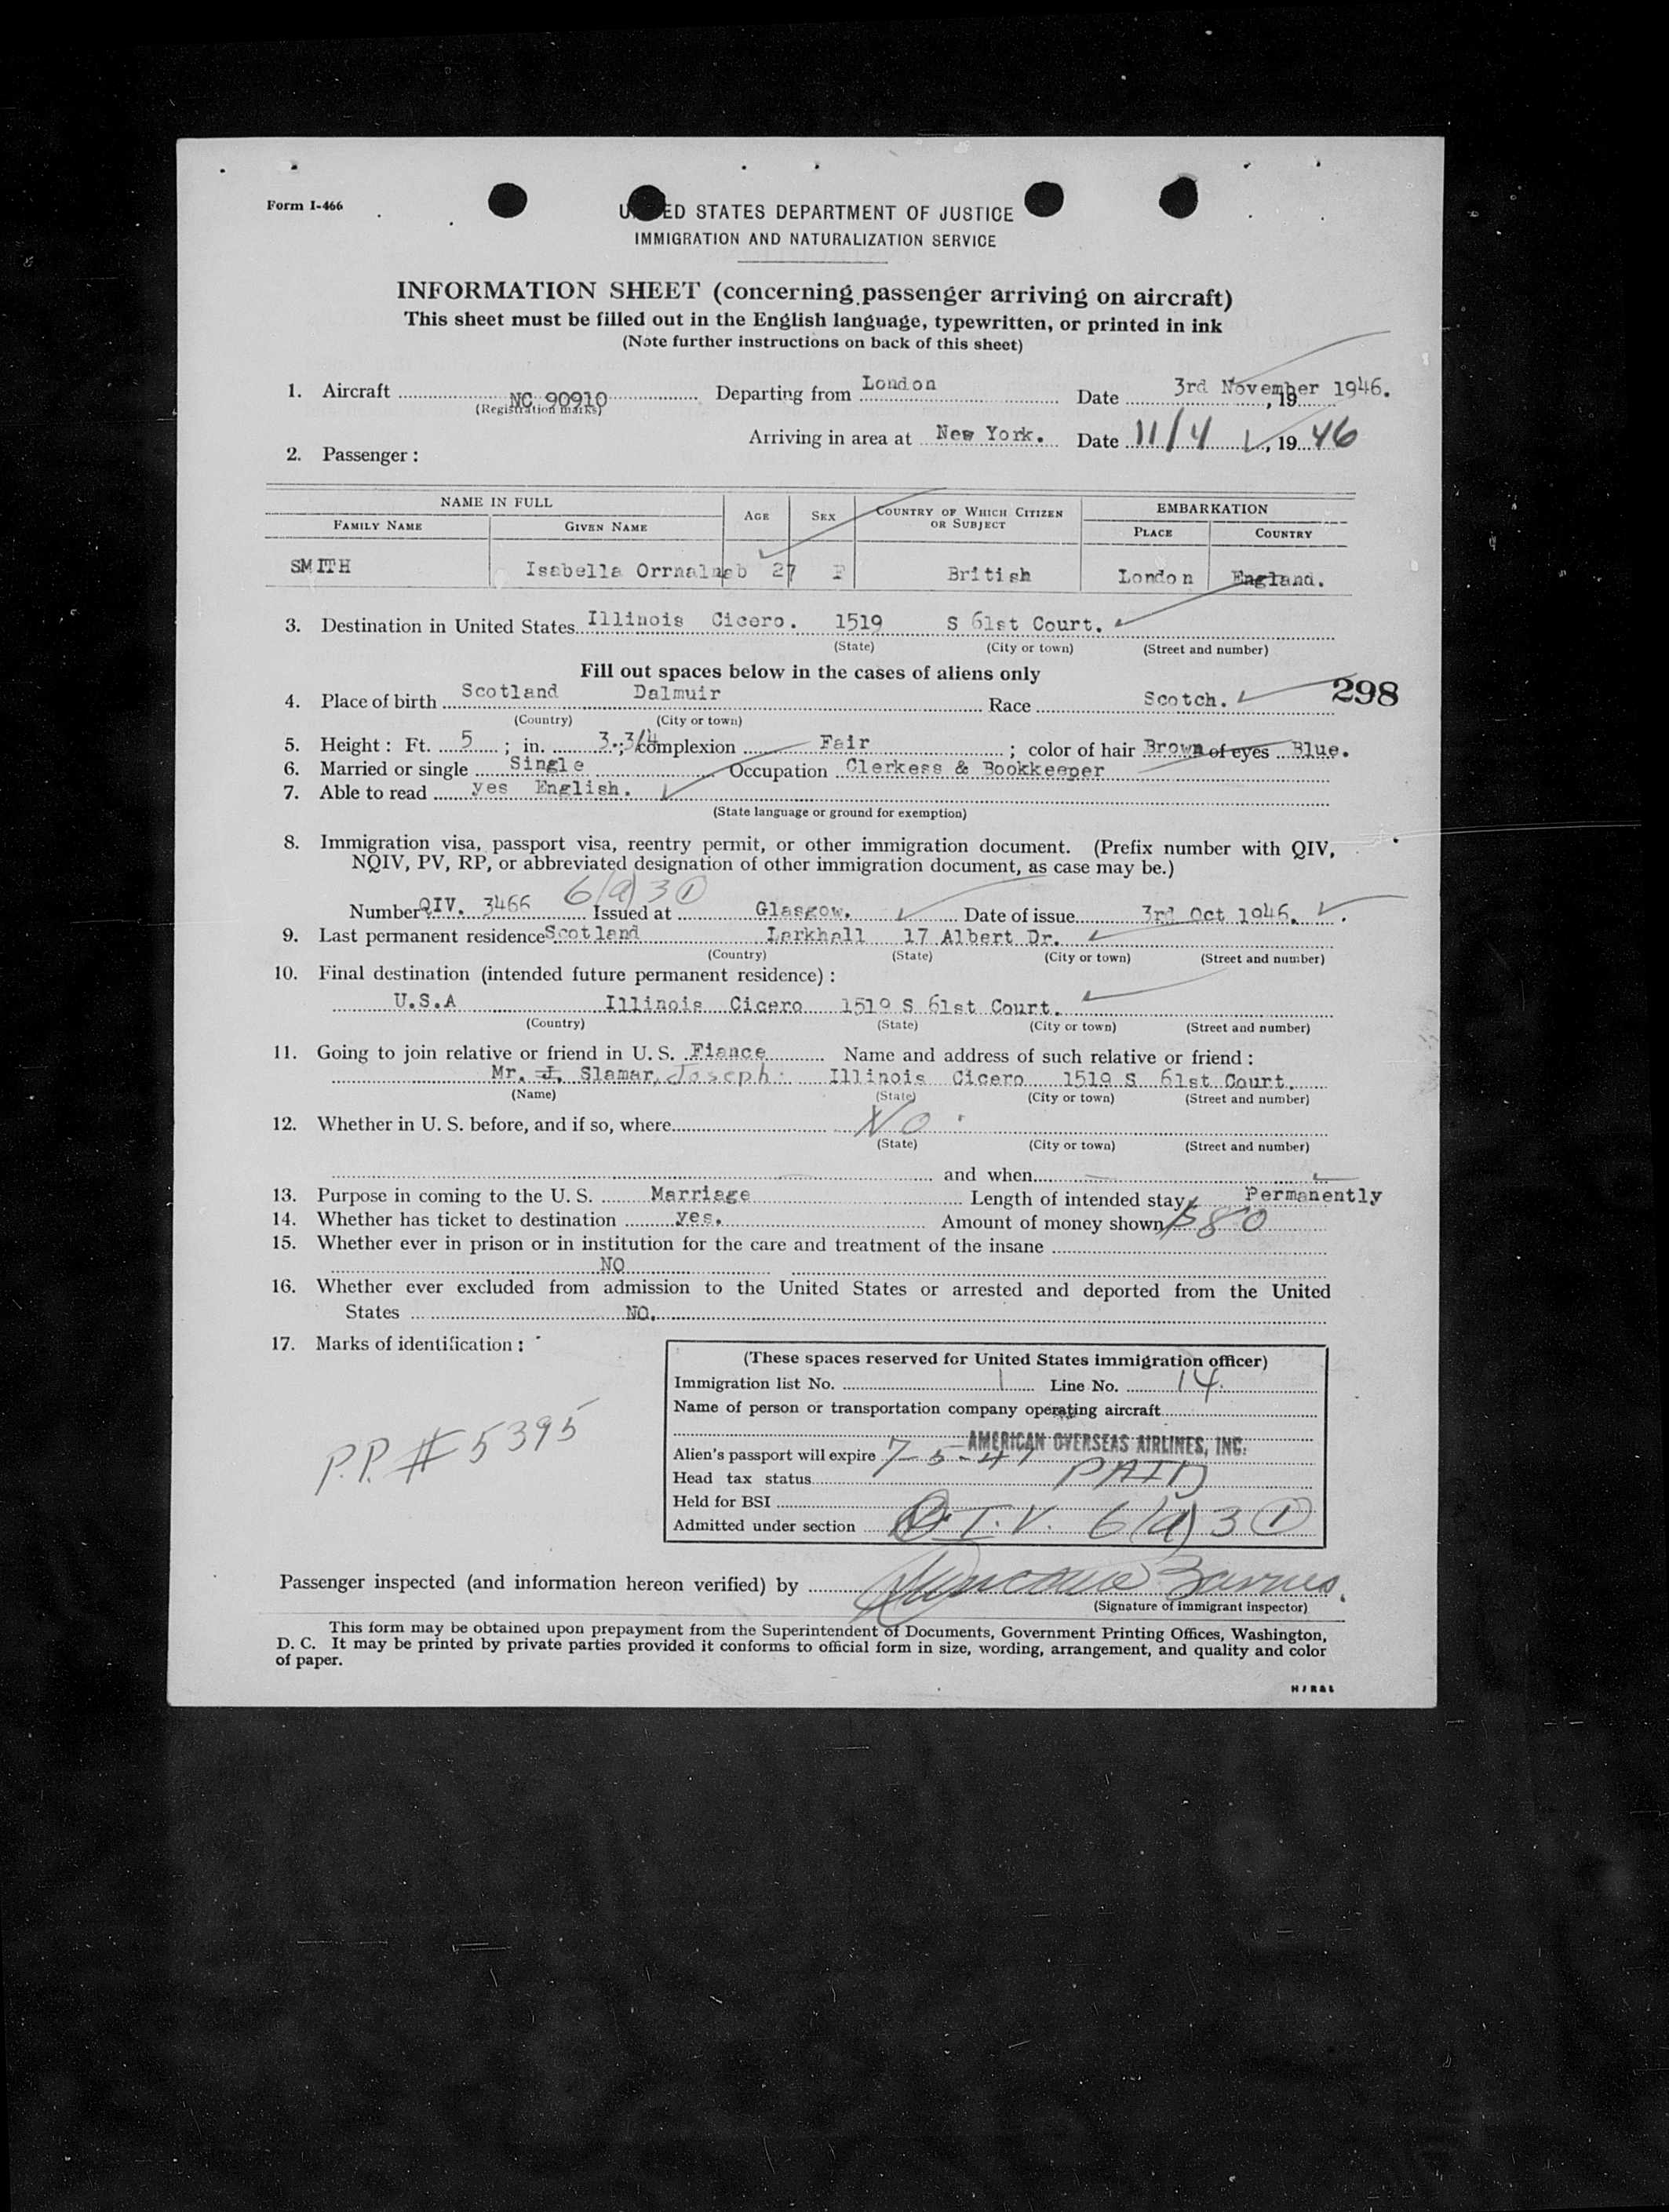 Form I-466
UNITED STATES DEPARTMENT OF JUSTICE
IMMIGRATION AND NATURALIZATION SERVICE
INFORMATION SHEET (concerning passenger arriving on aircraft)
This sheet must be filled out in the English language, typewritten, or printed in ink
(Note further instructions on back of this sheet)
1. Aircraft NC 90910 Departing from London Date 3rd November 1946. , 19
(Registration marks)
Arriving in area at New York. Date 11/4, 19 46
2. Passenger :
NAME IN FULL AGE SEX COUNTRY OF WHICH CITIZEN OR SUBJECT EMBARKATION
FAMILY NAME GIVEN NAME PLACE COUNTRY
SMITH Isabella 27 F British London England.
3. Destination in United States Illinois Cicero. 1519 S 61st Court.
(State) (City or town) (Street and number)
Fill out spaces below in the cases of aliens only
4. Place of birth Scotland Dalmuir Race Scotch. 298
(Country) (City or town)
5. Height : Ft. 5 ; in. 3.3/4 ; complexion Fair ; color of hair Brown of eyes Blue.
6. Married or single Single Occupation Clerkess & Bookkeeper
7. Able to read yes English.
(State language or ground for exemption)
8. Immigration visa, passport visa, reentry permit, or other immigration document. (Prefix number with QIV,
NQIV, PV, RP, or abbreviated designation of other immigration document, as case may be.)
6(a)3 ①
Number QIV. 3466 Issued at Glasgow. Date of issue 3rd Oct 1946.
9. Last permanent residence Scotland Larkhall 17 Albert Dr.
(Country) (State) (City or town) (Street and number)
10. Final destination (intended future permanent residence) :
U.S.A Illinois Cicero 1519 S 61st Court.
(Country) (State) (City or town) (Street and number)
11. Going to join relative or friend in U. S. Fiance Name and address of such relative or friend :
Mr. J. Slamar, Joseph. Illinois Cicero 1519 S 61st Court.
(Name) (State) (City or town) (Street and number)
12. Whether in U. S. before, and if so, where No
(State) (City or town) (Street and number)
and when
13. Purpose in coming to the U. S. Marriage Length of intended stay Permanently
14. Whether has ticket to destination yes. Amount of money shown $80
15. Whether ever in prison or in institution for the care and treatment of the insane
NO
16. Whether ever excluded from admission to the United States or arrested and deported from the United
States NO.
17. Marks of identification :
P.P. # 5395
(These spaces reserved for United States immigration officer)
Immigration list No. 1 Line No. 14.
Name of person or transportation company operating aircraft
AMERICAN OVERSEAS AIRLINES, INC.
Alien's passport will expire 7-5-47
Head tax status PAID
Held for BSI
Admitted under section Q.I.V. 6(a)3 ①
Passenger inspected (and information hereon verified) by
(Signature of immigrant inspector)
This form may be obtained upon prepayment from the Superintendent of Documents, Government Printing Offices, Washington,
D. C. It may be printed by private parties provided it conforms to official form in size, wording, arrangement, and quality and color
of paper.